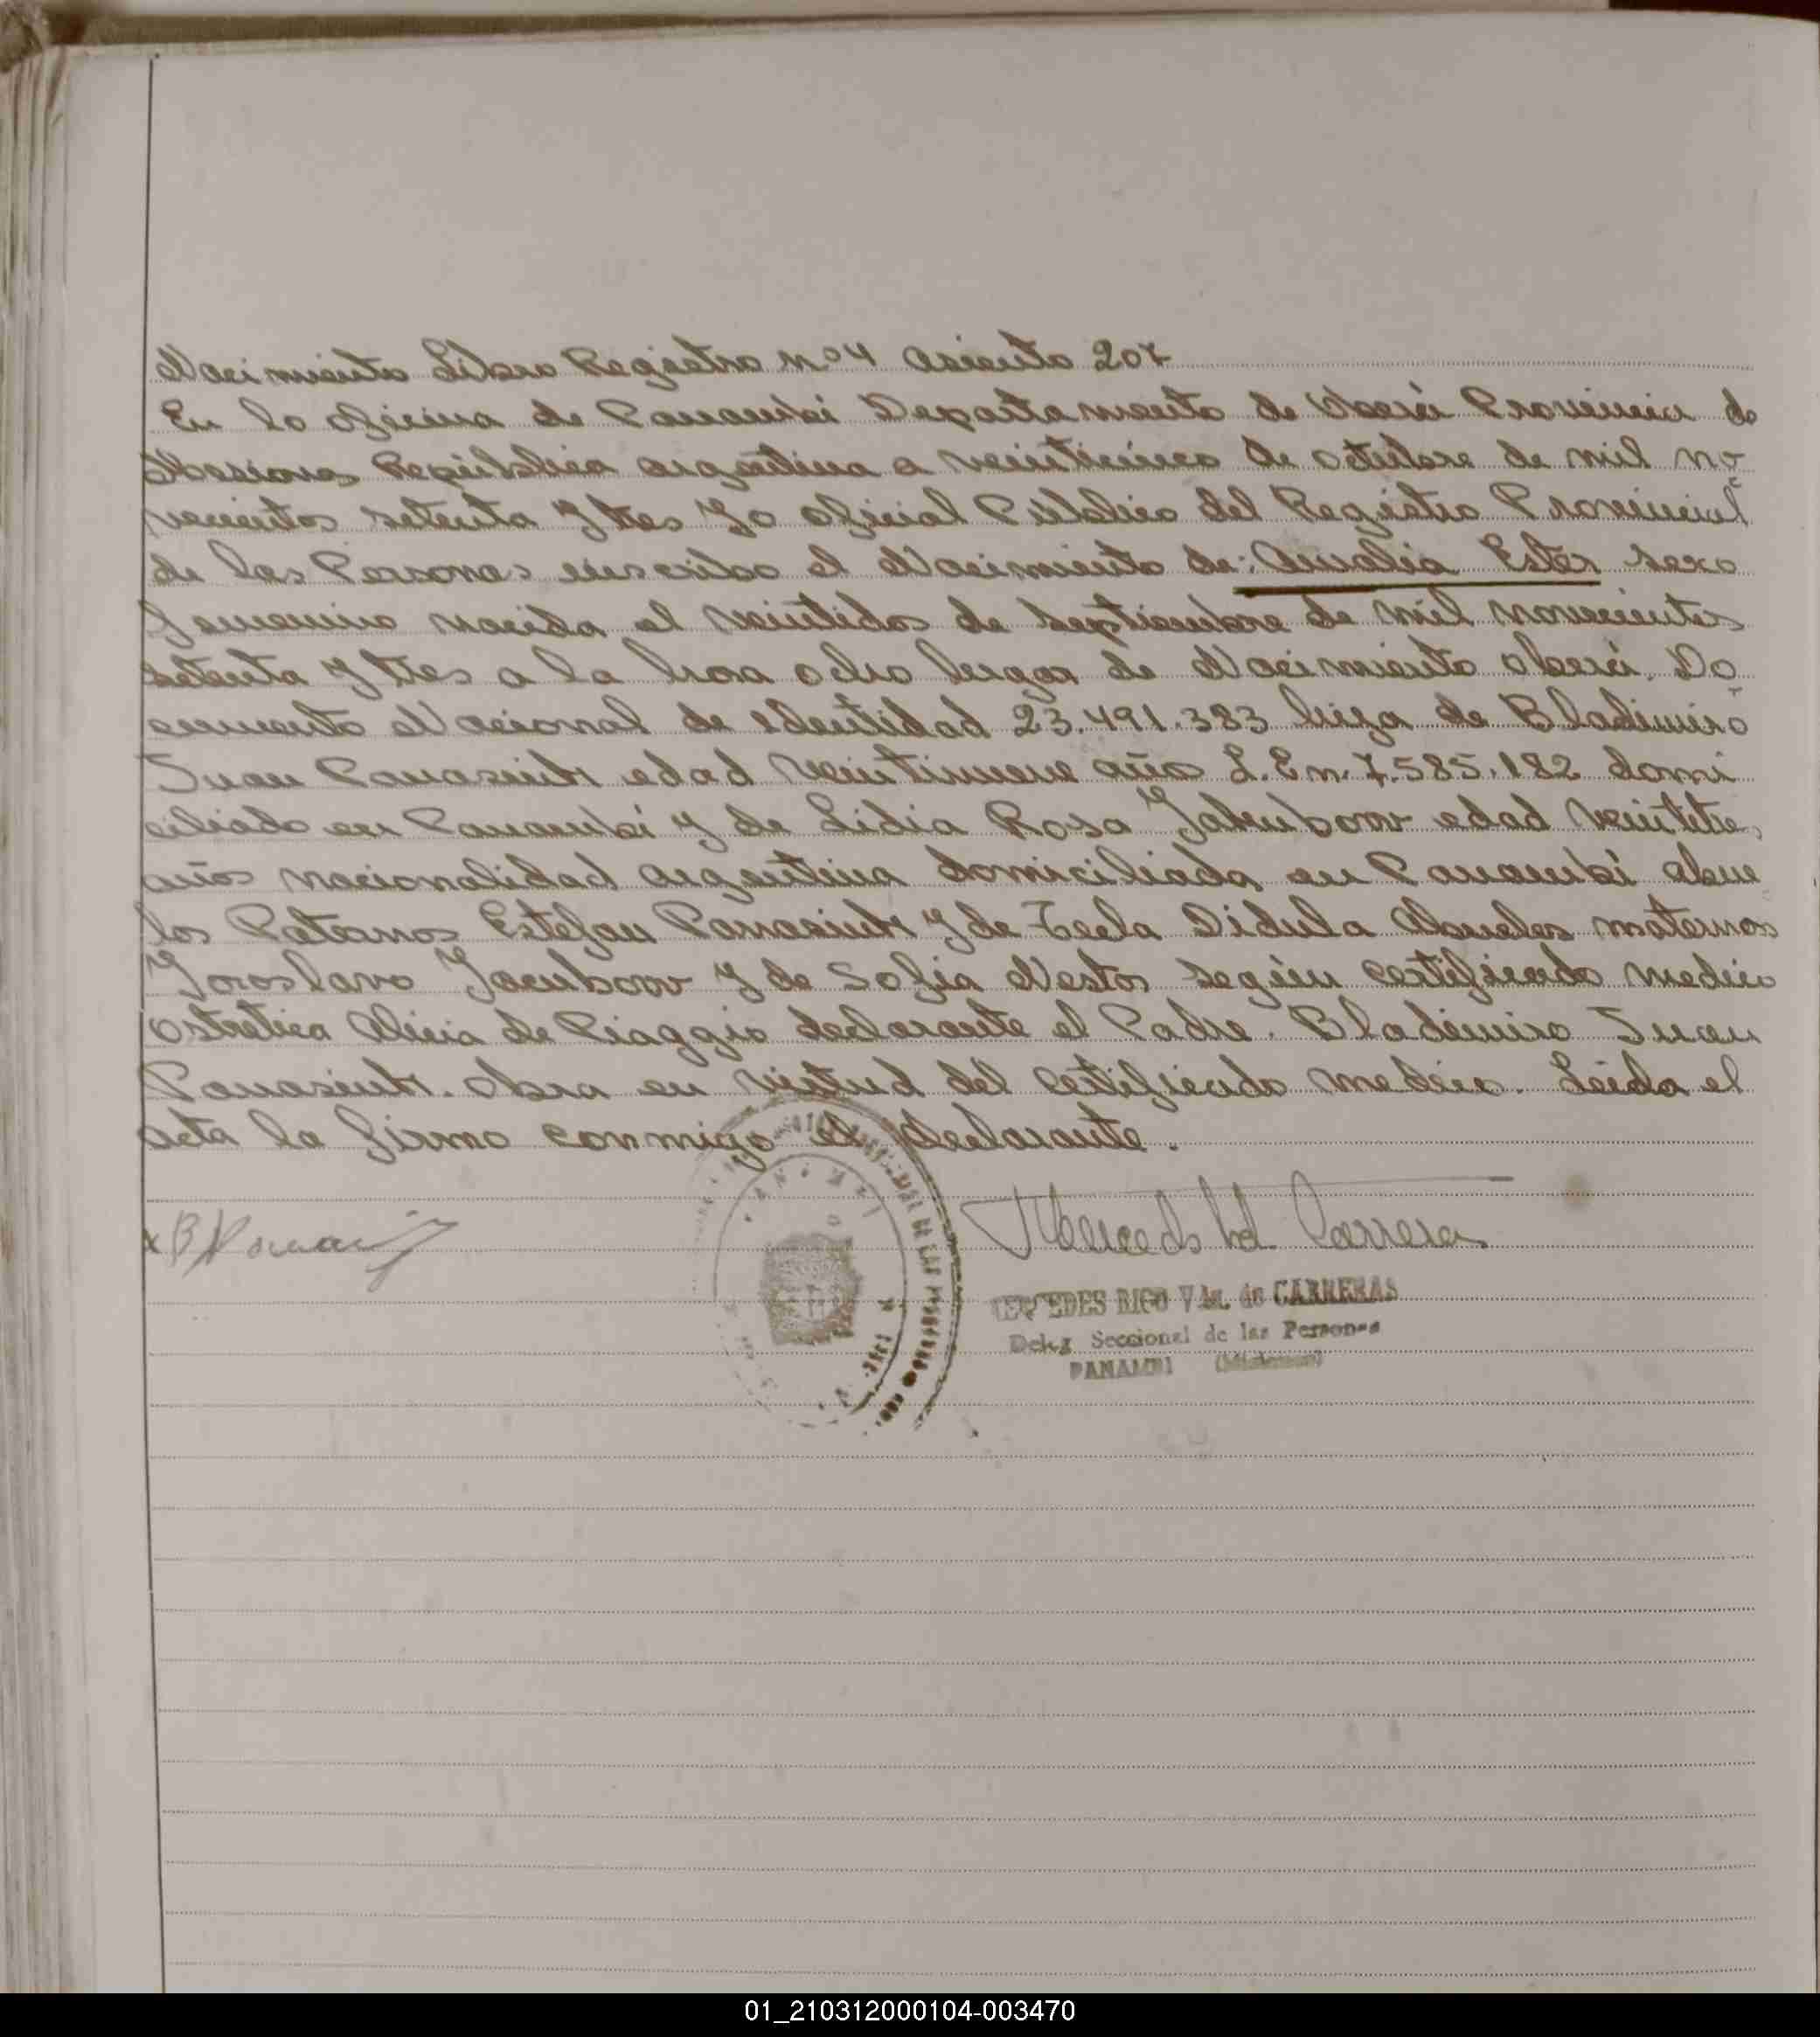 Nacimiento Libro Registro Nº 4 asiento 207
En la oficina de Panambí Departamento de Oberá Provincia de
Misiones República argentina a veinticinco de octubre de mil no
vecientos setenta y tres yo oficial Público del Registro Provincial
de las Personas inscribo el Nacimiento de: Amalia Ester sexo
femenino nacida el veintidos de septiembre de mil novecientos
setenta y tres a la hora ocho lugar de Nacimiento oberá. Do
cumento Nacional de identidad 23.491.383 hija de Bladimiro
Juan Panasiuk edad veintinueve año L.E n. 7.585.182 domi
ciliado en Panambí y de Lidia Rosa Yakubow edad veintitre
años nacionalidad argentina domiciliada en Panambí abue
los Paternos Estefan Panasiuk y de Tecla Didula abuelos maternos
Yoroslavo Yacubow y de Sofia Nestor según certificado medico
Ostretica Alicia de Piaggio declarante el Padre. Bladimiro Juan
Panasiuk. obra en virtud del certificado medico. Leida el
acta la firmo conmigo el declarante.
DE LAS PERSONAS
MERCEDES RIGO Vda. de CARRERAS
Deleg. Seccional de las Personas
PANAMBI (Misiones)
01_210312000104-003470